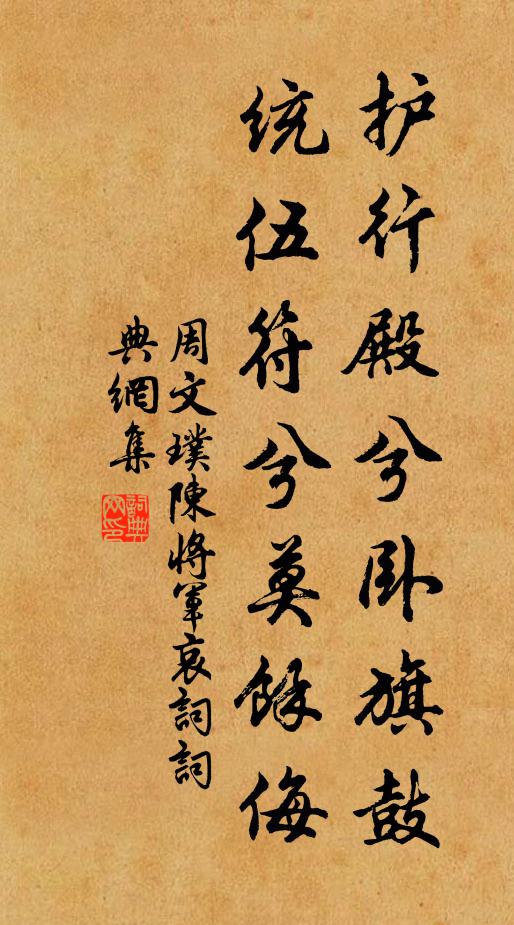 护行殿兮卧旗鼓
统伍符兮莫余侮
周文璞陳将軍哀詞詞
典網集
詞典網印